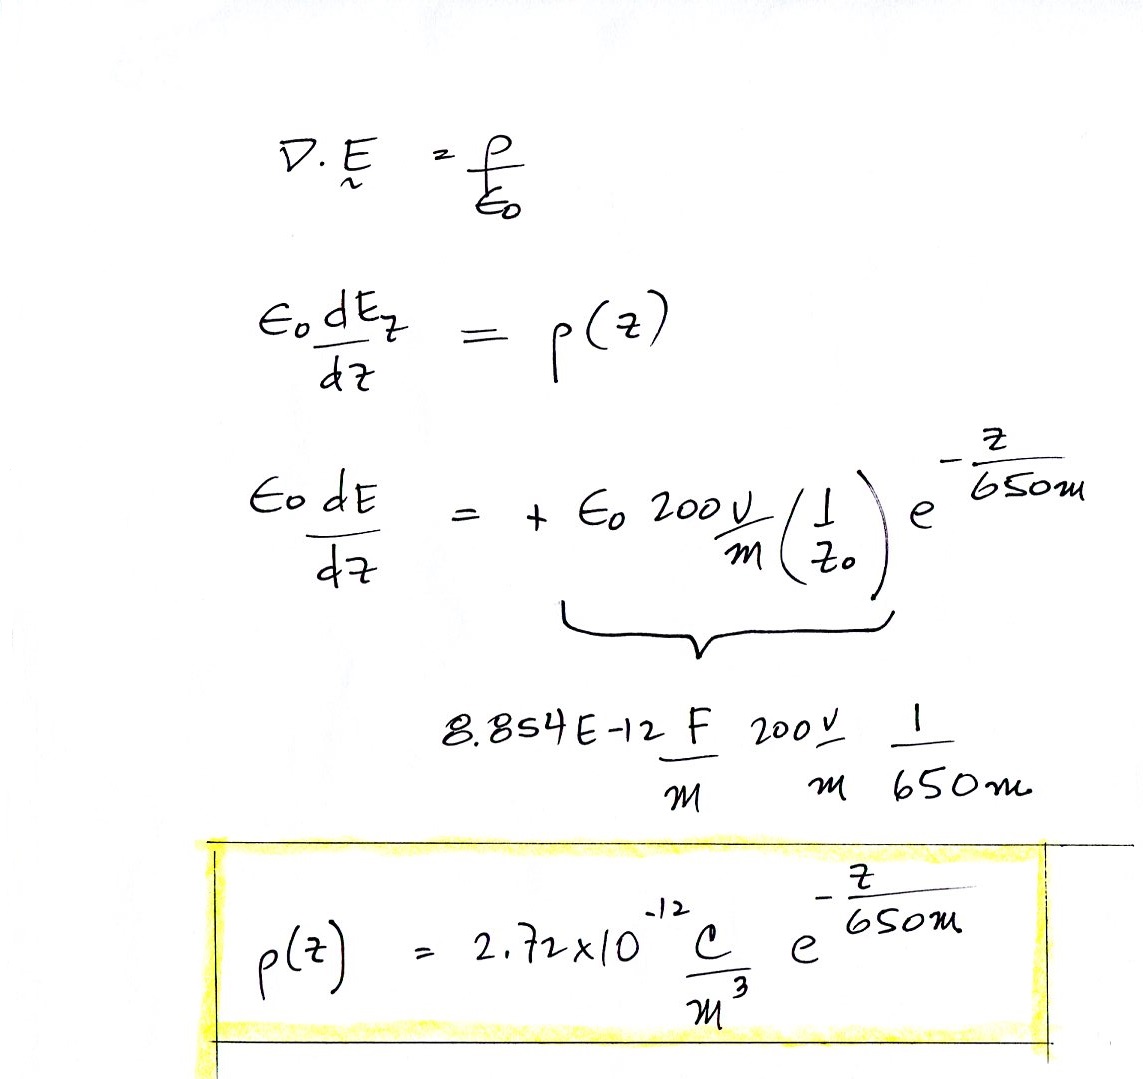 ∇·Ḛ = ρ/ϵ₀
ϵ₀ dE_z/dz = ρ(z)
ϵ₀ dE/dz = + ϵ₀ 200 V/m (1/z₀) e^(-z/650m)
8.854E-12 F/m 200 V/m 1/650m
ρ(z) = 2.72×10^-12 C/m³ e^(-z/650m)